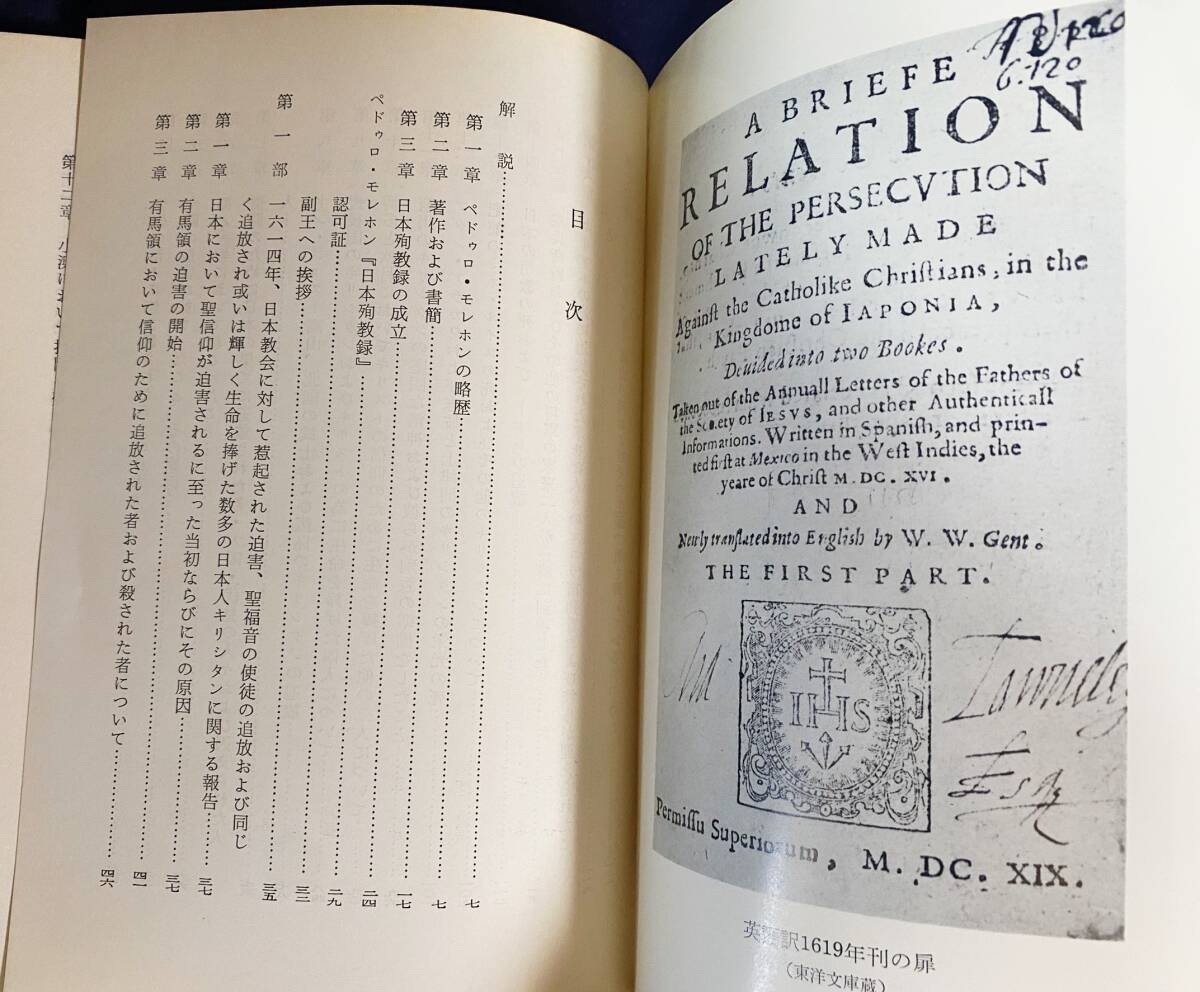 A BRIEFE
RELATION
OF THE PERSECVTION
LATELY MADE
Againſt the Catholike Chriſtians, in the
Kingdome of IAPONIA,
Deuided into two Bookes.
Taken out of the Annuall Letters of the Fathers of
the Society of IESVS, and other Authenticall
Informations. Written in Spaniſh, and prin-
ted firſt at Mexico in the Weſt Indies, the
yeare of Chriſt M. DC. XVI.
AND
Newly tranſlated into Engliſh by W. W. Gent.
THE FIRST PART.
IHS
Permiſſu Superiorum, M. DC. XIX.
6.120
Eſq
英語訳1619年刊の扉
(東洋文庫蔵)
目次
解説……七
第一章 ペドゥロ・モレホンの略歴……七
第二章 著作および書簡……一七
第三章 日本殉教録の成立……二四
ペドゥロ・モレホン『日本殉教録』……二九
認可証……三三
副王への挨拶……三五
第一部 一六一四年、日本教会に対して惹起された迫害、聖福音の使徒の追放および同じ
く追放され或いは輝しく生命を捧げた数多の日本人キリシタンに関する報告……三七
第一章 日本において聖信仰が迫害されるに至った当初ならびにその原因……三七
第二章 有馬領の迫害の開始……四一
第三章 有馬領において信仰のために追放された者および殺された者について……四六
第十二章